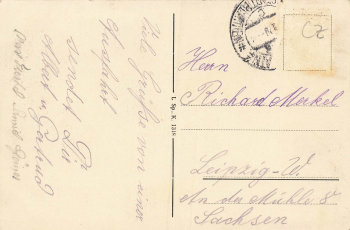 Viele Grüße von einer
Ausfahrt
sendet Dir
Albert u. Gertrud
L. Sp. K. 1318
CZ
Herrn
Richard Merkel
Leipzig-W.
An der Mühle 8
Sachsen